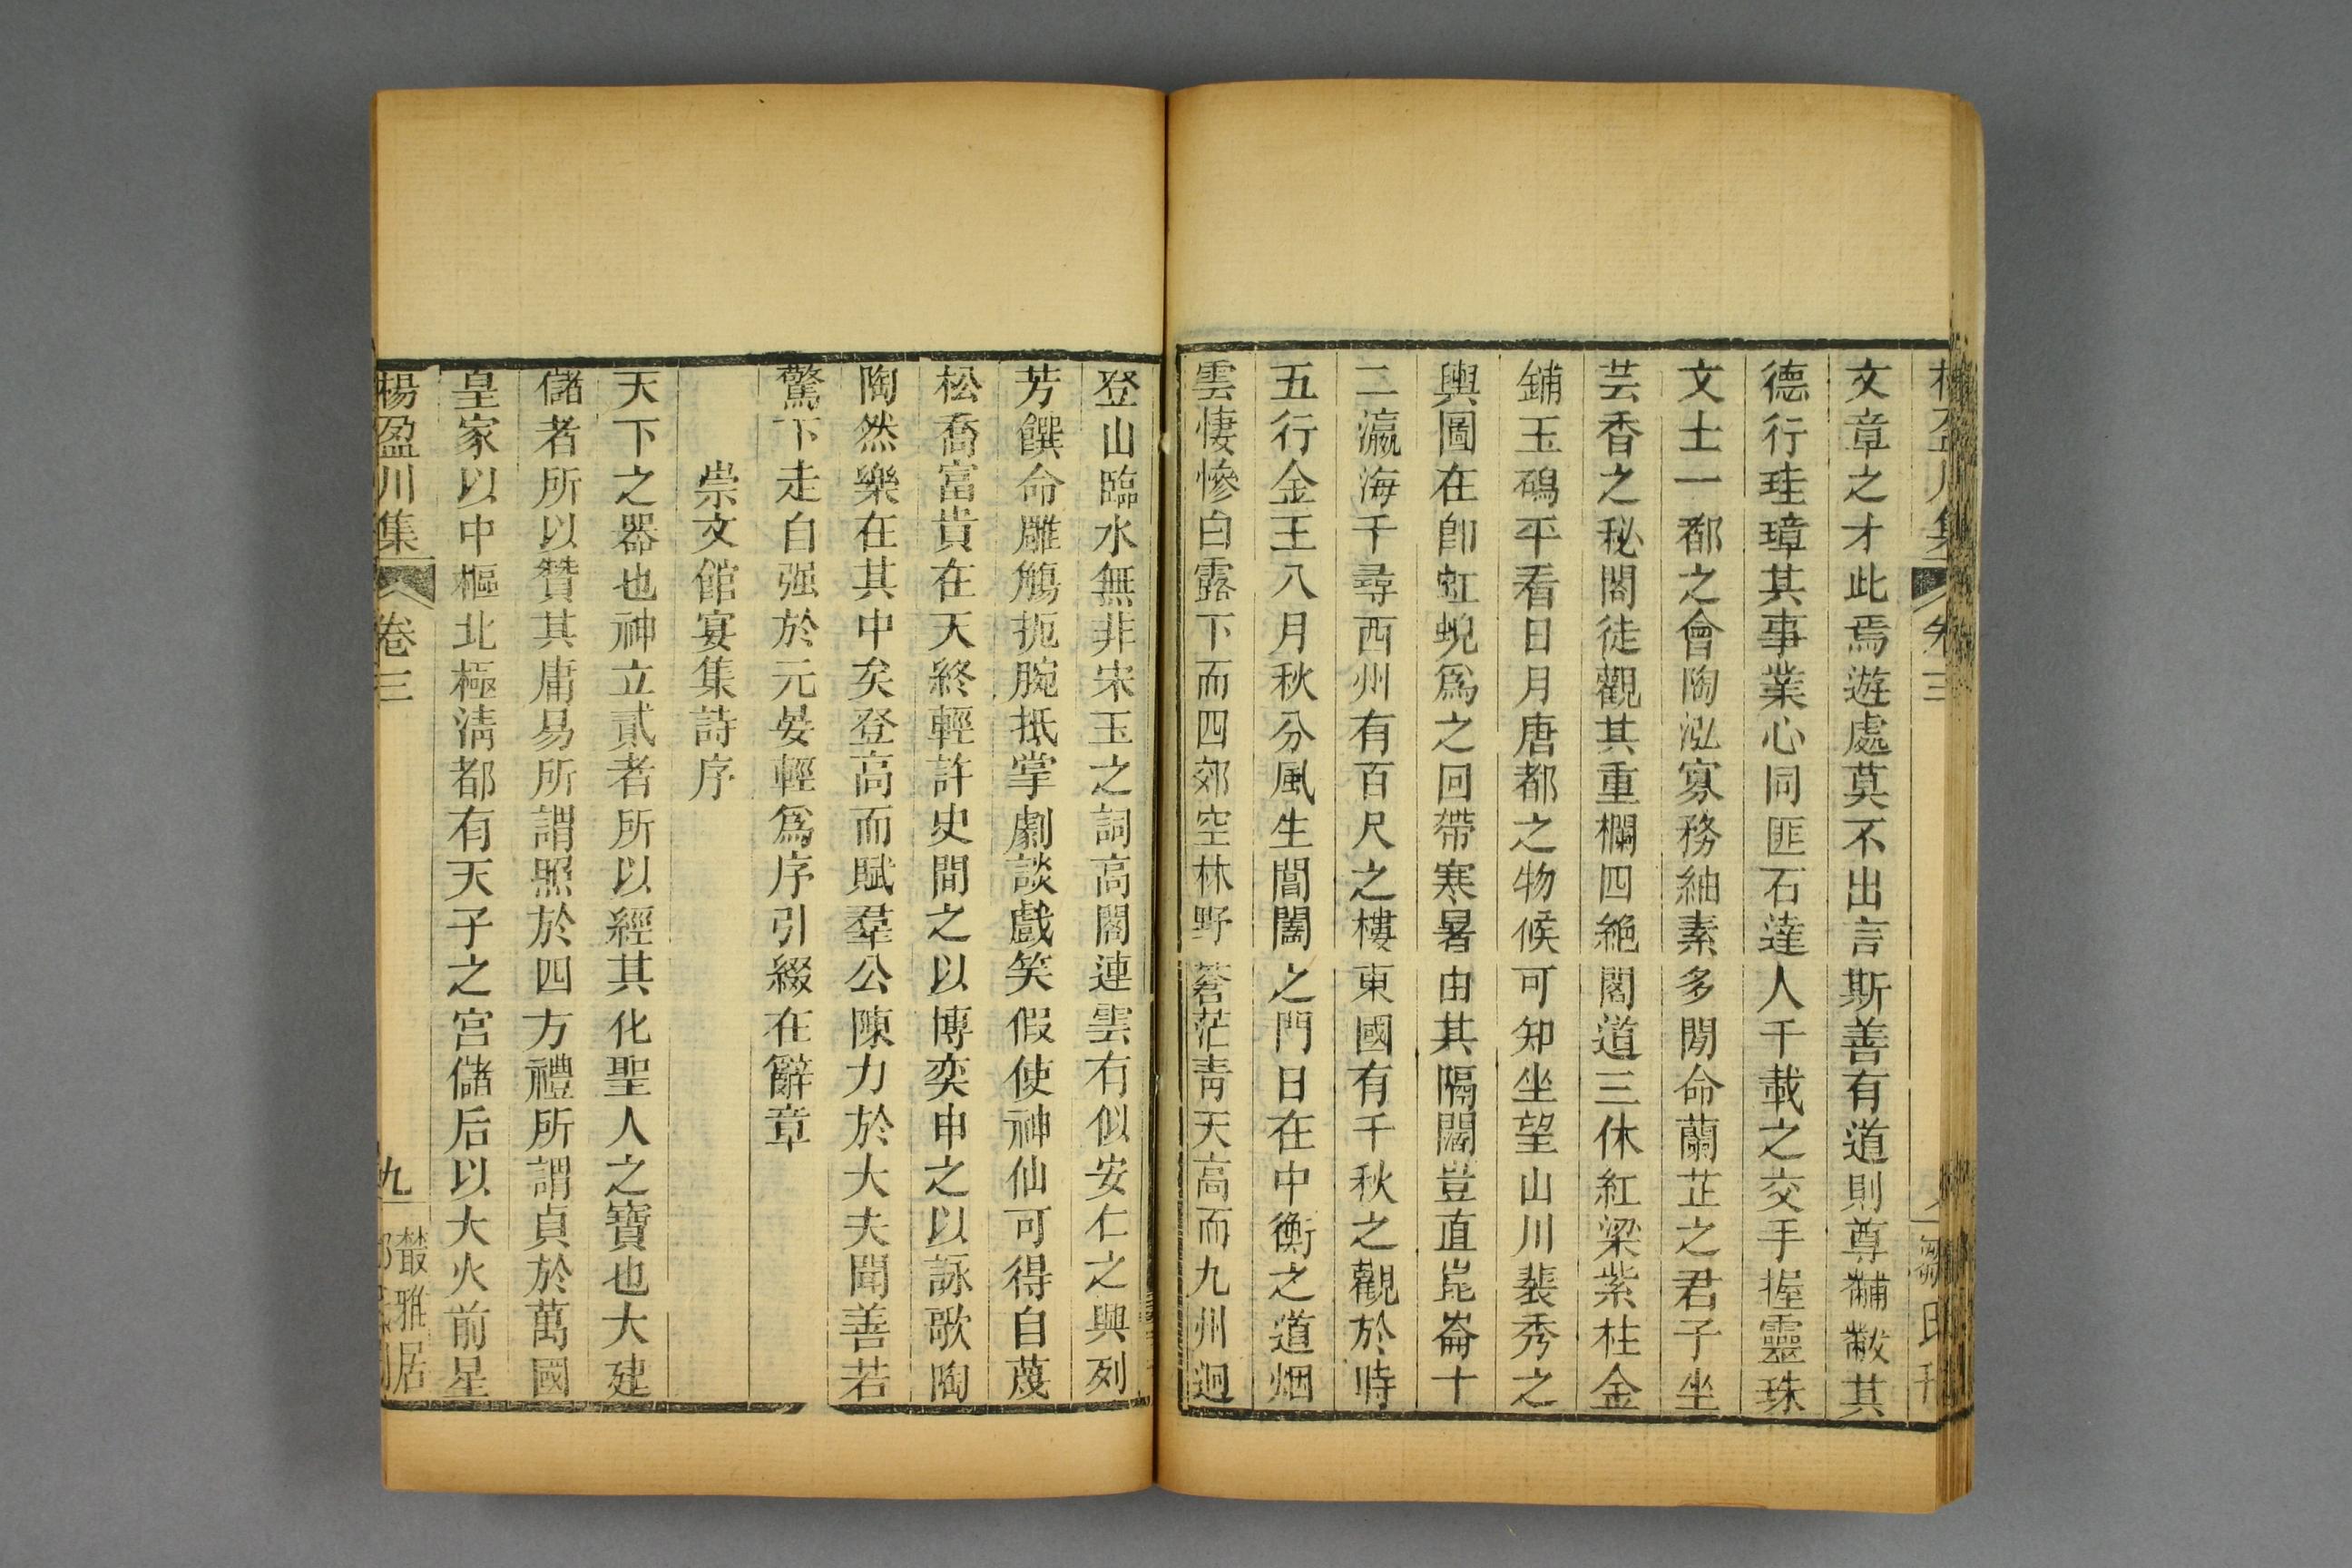 文章之才此焉遊處莫不出言斯善有道則尊黼黻其
德行珪璋其事業心同匪石達人千載之交手握靈珠
文士一都之會陶泓寡務紬素多閒命蘭芷之君子坐
芸香之秘閣徒觀其重欄四絶閣道三休紅梁紫柱金
鋪玉磶平看日月唐都之物候可知坐望山川裴秀之
輿圖在卽虹蜺爲之回帶寒暑由其隔闊豈直崑崙十
二瀛海千尋西州有百尺之樓東國有千秋之觀於時
五行金王八月秋分風生閶闔之門日在中衡之道烟
雲悽慘白露下而四郊空林野蒼茫靑天高而九州迥
登山臨水無非宋玉之詞高閣連雲有似安仁之興列
芳饌命雕觴扼腕抵掌劇談戲笑假使神仙可得自蔑
松喬富貴在天終輕許史間之以博奕申之以詠歌陶
陶然樂在其中矣登高而賦羣公陳力於大夫聞善若
驚下走自强於元晏輕爲序引綴在辭章
崇文館宴集詩序
天下之器也神立貳者所以經其化聖人之寶也大建
儲者所以贊其庸易所謂照於四方禮所謂貞於萬國
皇家以中樞北極淸都有天子之宮儲后以大火前星
楊盈川集 卷三 九 叢雅居